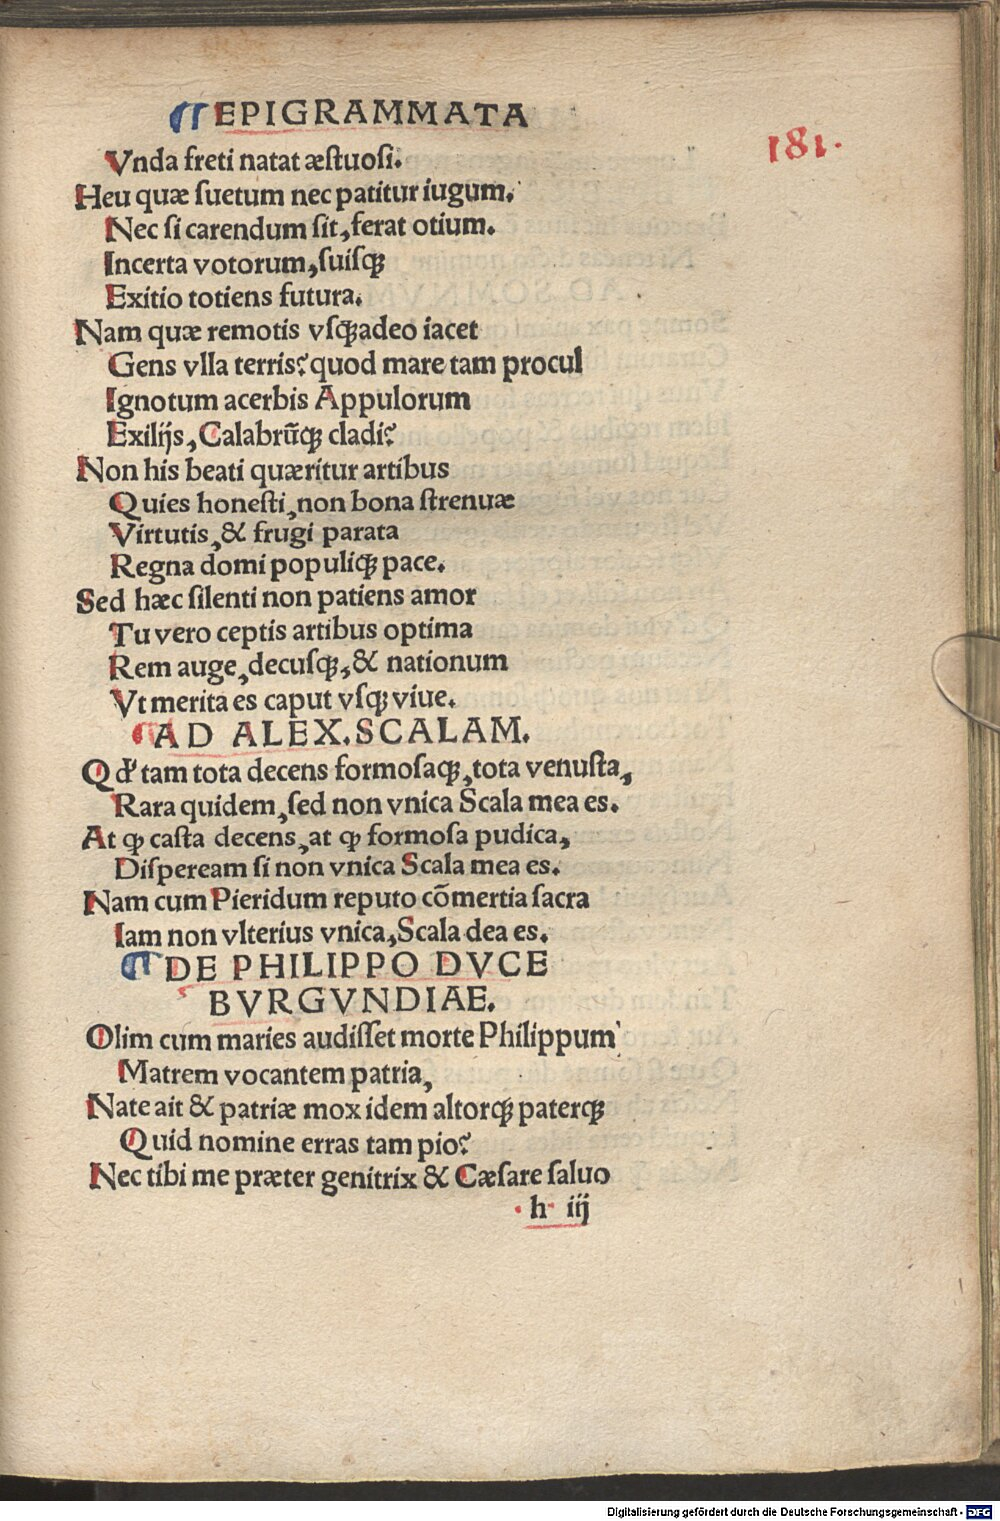 ¶EPIGRAMMATA
181.
Vnda freti natat æstuosi.
Heu quæ suetum nec patitur iugum.
Nec si carendum sit, ferat otium.
Incerta votorum, suisq;
Exitio totiens futura.
Nam quæ remotis vsq;adeo iacet
Gens vlla terris? quod mare tam procul
Ignotum acerbis Appulorum
Exilijs, Calabrūq; cladi?
Non his beati quæritur artibus
Quies honesti, non bona strenuæ
Virtutis, & frugi parata
Regna domi populiq; pace.
Sed hæc silenti non patiens amor
Tu vero ceptis artibus optima
Rem auge, decusq;, & nationum
Vt merita es caput vsq; viue.
¶AD ALEX.SCALAM.
Qđ tam tota decens formosaq;, tota venusta,
Rara quidem, sed non vnica Scala mea es.
At ꝙ casta decens, at ꝙ formosa pudica,
Dispeream si non vnica Scala mea es.
Nam cum Pieridum reputo cōmertia sacra
Iam non vlterius vnica, Scala dea es.
¶DE PHILIPPO DVCE
BVRGVNDIAE.
Olim cum maries audisset morte Philippum
Matrem vocantem patria,
Nate ait & patriæ mox idem altorq; paterq;
Quid nomine erras tam pio?
Nec tibi me præter genitrix & Cæsare saluo
h iij
Digitalisierung gefördert durch die Deutsche Forschungsgemeinschaft - DFG